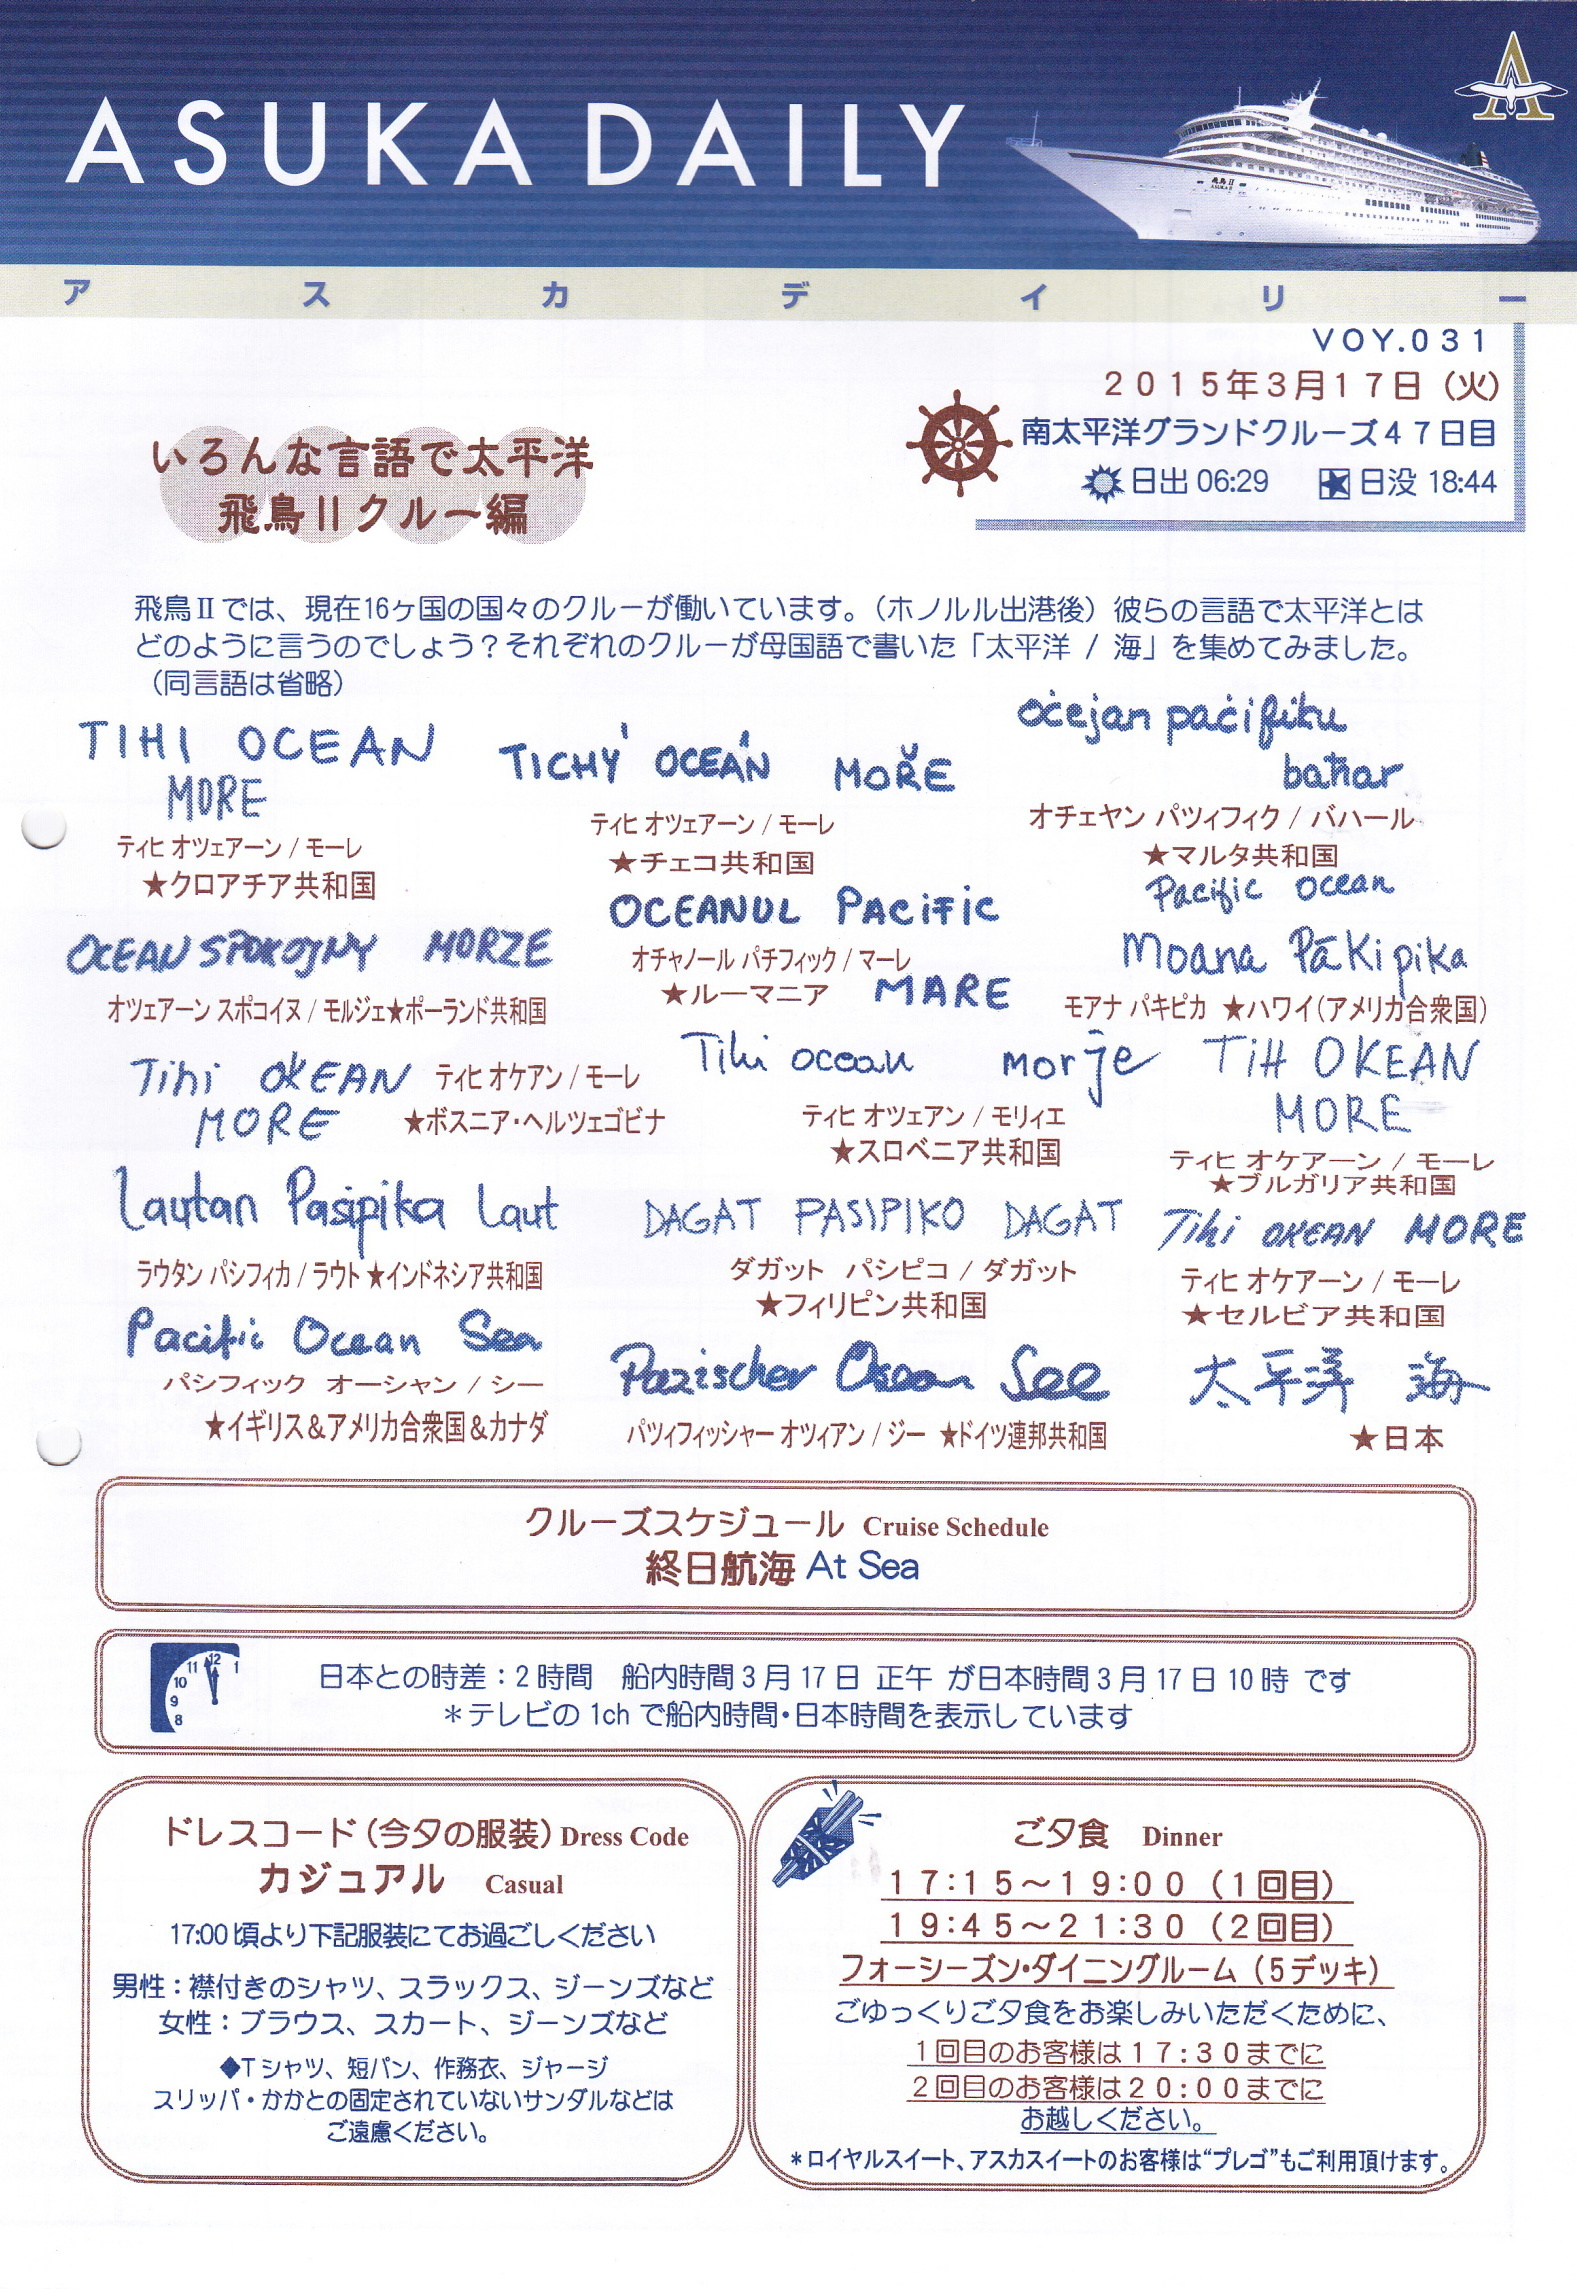 ASUKA DAILY
飛鳥Ⅱ
ASUKA Ⅱ
アスカデイリー
VOY.031
2015年3月17日（火）
南太平洋グランドクルーズ47日目
日出 06:29 日没 18:44
いろんな言語で太平洋
飛鳥Ⅱクルー編
飛鳥Ⅱでは、現在16ヶ国の国々のクルーが働いています。（ホノルル出港後）彼らの言語で太平洋とは
どのように言うのでしょう？それぞれのクルーが母国語で書いた「太平洋 / 海」を集めてみました。
（同言語は省略）
TIHI OCEAN
MORE
ティヒ オツェアーン / モーレ
★クロアチア共和国
TICHÝ OCEÁN MOŘE
ティヒ オツェアーン / モーレ
★チェコ共和国
oċejan paċifiku
baħar
オチェヤン パツィフィク / バハール
★マルタ共和国
OCEAN SPOKOJNY MORZE
オツェアーン スポコイヌ / モルジェ★ポーランド共和国
OCEANUL PACIFIC
オチャノール パチフィック / マーレ
★ルーマニア MARE
Pacific ocean
Moana Pākipika
モアナ パキピカ ★ハワイ（アメリカ合衆国）
Tihi OKEAN ティヒ オケアン / モーレ
MORE ★ボスニア・ヘルツェゴビナ
Tihi ocean morje
ティヒ オツェアン / モリィエ
★スロベニア共和国
TiH OKEAN
MORE
ティヒ オケアーン / モーレ
★ブルガリア共和国
Lautan Pasipika Laut
ラウタン パシフィカ / ラウト ★インドネシア共和国
DAGAT PASIPIKO DAGAT
ダガット パシピコ / ダガット
★フィリピン共和国
Tihi OKEAN MORE
ティヒ オケアーン / モーレ
★セルビア共和国
Pacific Ocean Sea
パシフィック オーシャン / シー
★イギリス＆アメリカ合衆国＆カナダ
Pazischer Ocean See
パツィフィッシャー オツィアン / ジー ★ドイツ連邦共和国
太平洋 海
★日本
クルーズスケジュール Cruise Schedule
終日航海 At Sea
11 12 1
10
9
8
日本との時差：2時間 船内時間3月17日 正午 が日本時間3月17日10時 です
＊テレビの1chで船内時間・日本時間を表示しています
ドレスコード（今夕の服装）Dress Code
カジュアル Casual
17:00頃より下記服装にてお過ごしください
男性：襟付きのシャツ、スラックス、ジーンズなど
女性：ブラウス、スカート、ジーンズなど
◆Tシャツ、短パン、作務衣、ジャージ
スリッパ・かかとの固定されていないサンダルなどは
ご遠慮ください。
ご夕食 Dinner
17:15～19:00（1回目）
19:45～21:30（2回目）
フォーシーズン・ダイニングルーム（5デッキ）
ごゆっくりご夕食をお楽しみいただくために、
1回目のお客様は17:30までに
2回目のお客様は20:00までに
お越しください。
＊ロイヤルスイート、アスカスイートのお客様は“プレゴ”もご利用頂けます。